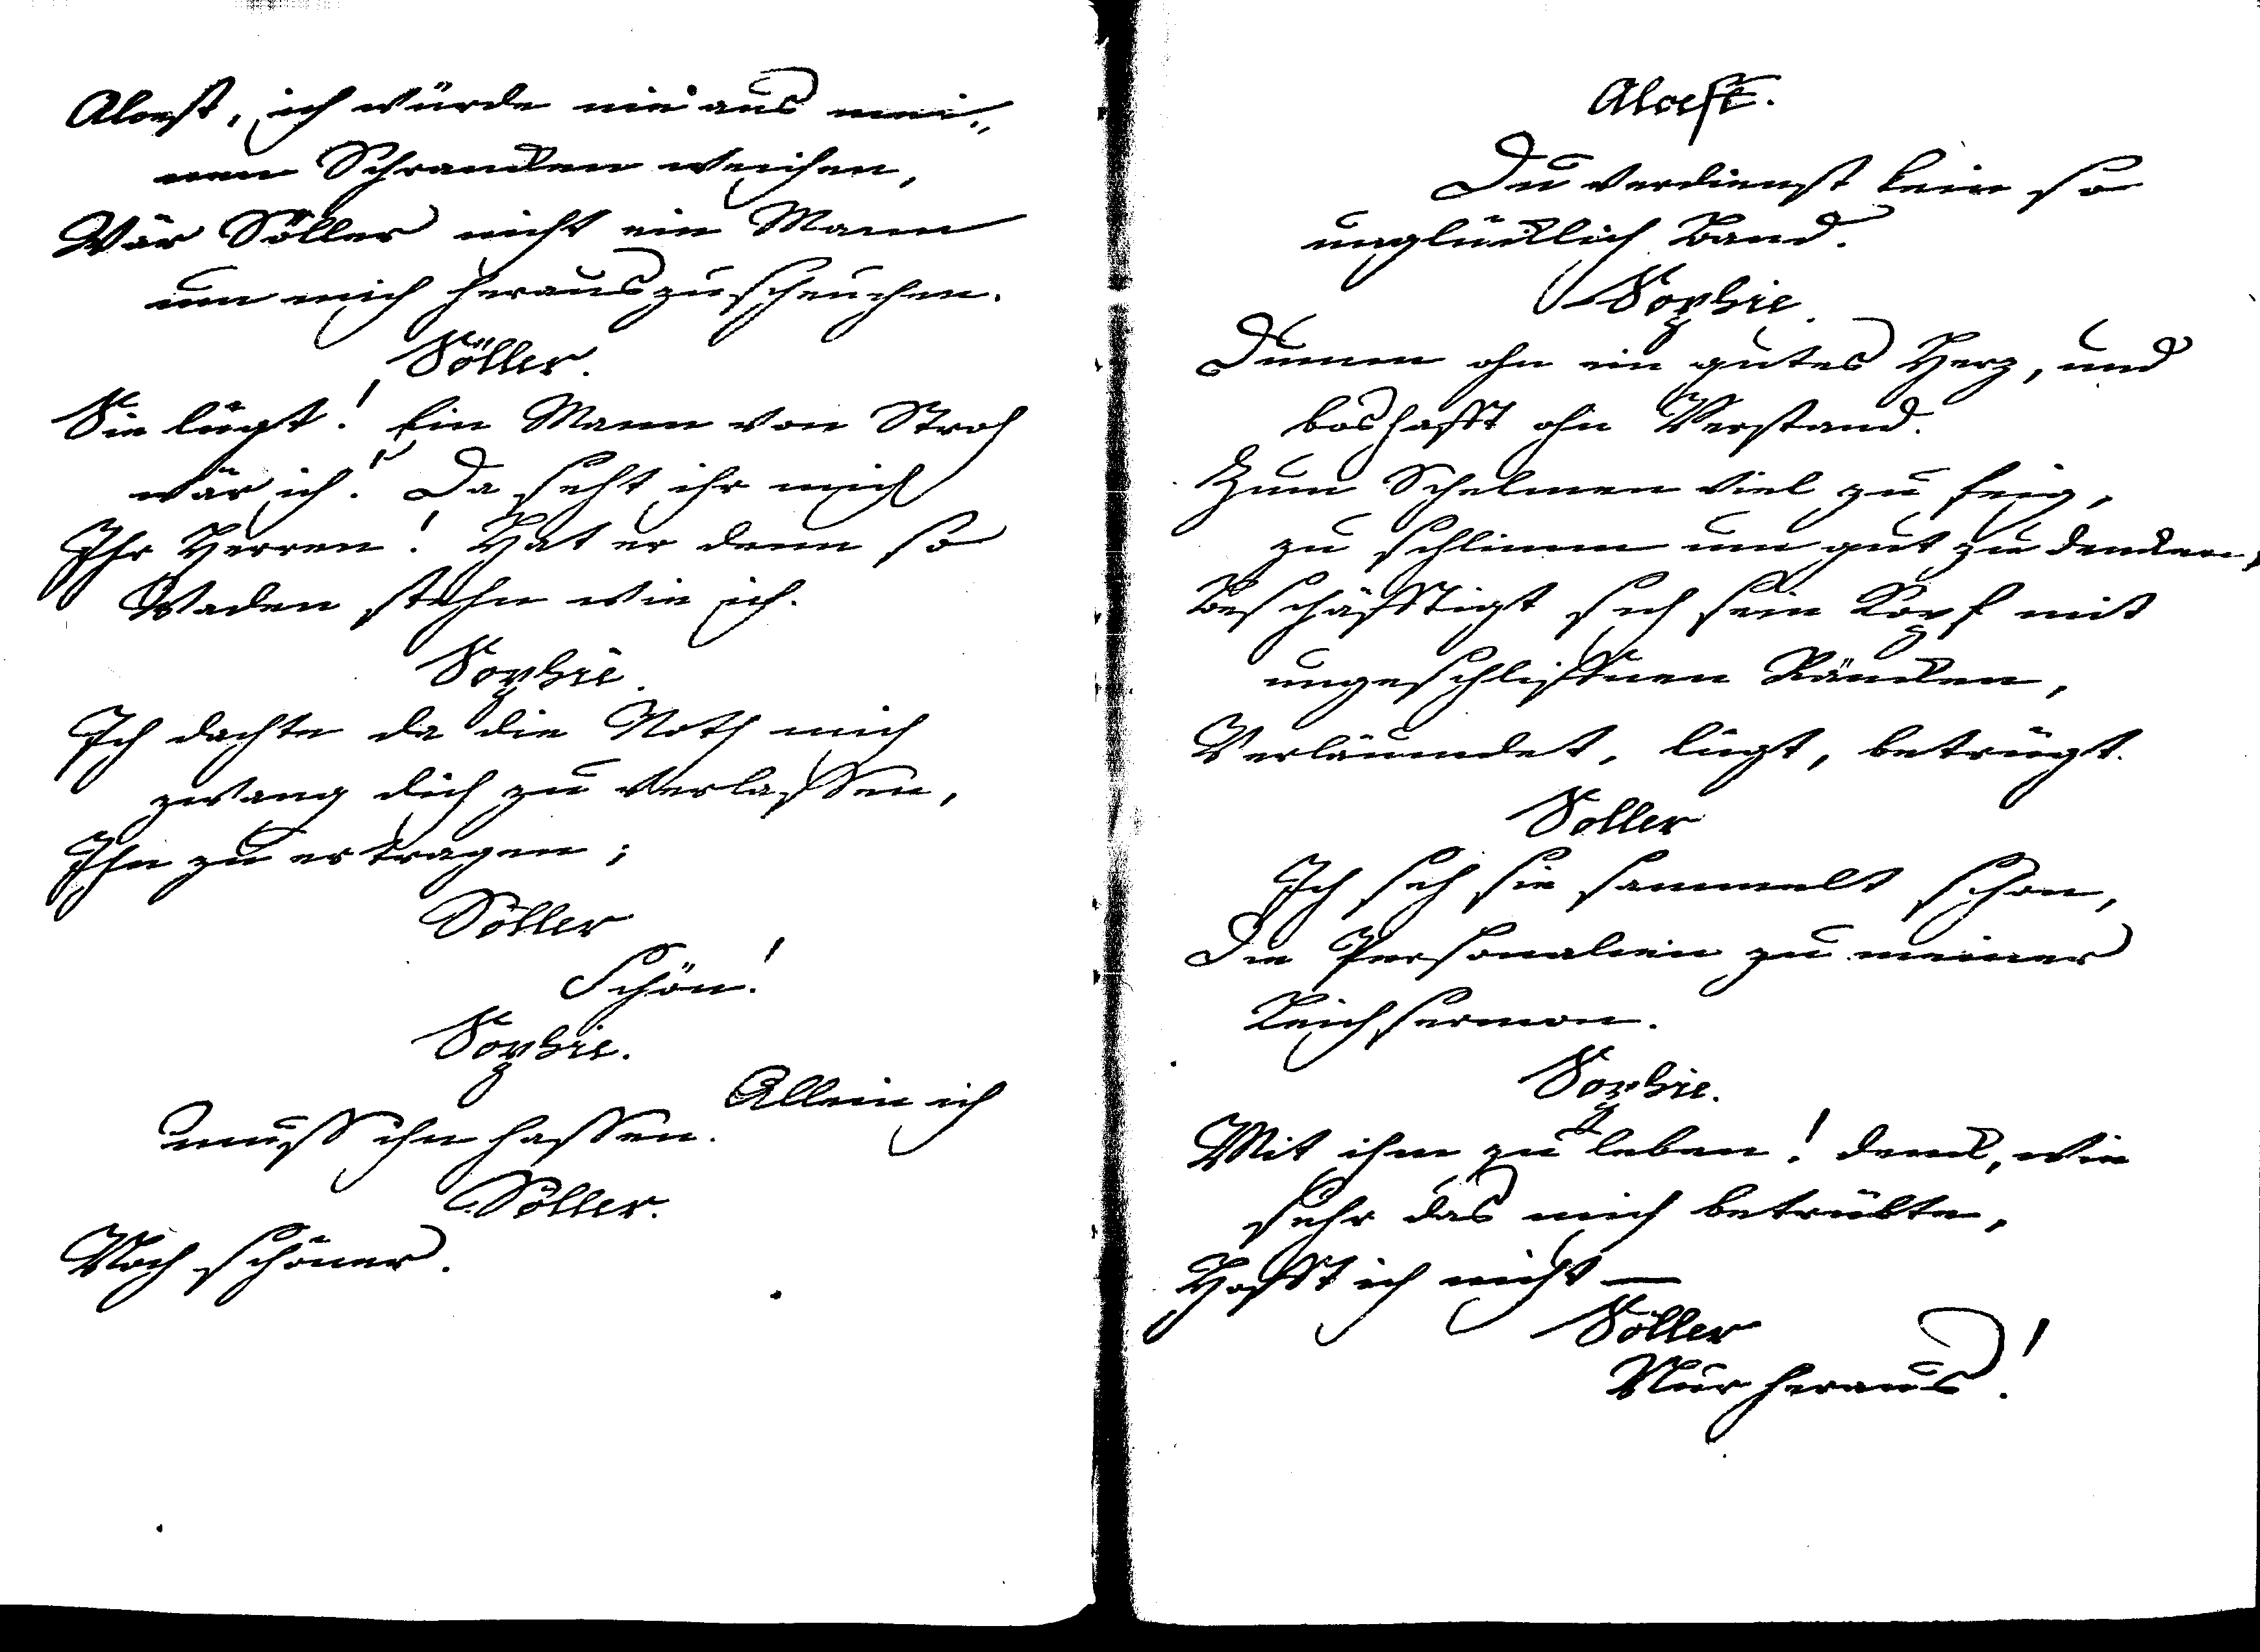 Alcest, ich würde nie aus mei-
nen Schrancken weichen,
Wär Söller nicht ein Mann
um mich herauszuscheuchen.
Söller.
Sie lügt! Ein Mann von Stroh
wär ich! Da seht ihr mich
Ihr Herren! Hat er denn so
Waden stehn wie ich.
Sophie.
Ich dachte da die Noth mich
zwang dich zu verlassen,
Ihn zu ertragen;
Söller
Schön!
Sophie.
Allein ich
muss ihn hassen.
Söller.
Noch schöner.
Alcest.
Du verdienst kein so
unglücklich Band.
Sophie.
Dumm ohn ein gutes Herz, und
boshafft ohn Verstand.
Zum Schelmen viel zu feig,
zu schlimm um gut zu dencken,
Beschäfftigt sich sein Kopf mit
ungeschliffnen Räncken,
Verläumdet, lügt, betrügt.
Soller
Ich seh sie sammelt schon,
Die Personalien zu meiner
Leichsermon.
Sophie.
Mit ihm zu leben! denck, wie
sehr das mich betrübte,
Hofft ich nicht —
Söller
Nur heraus!